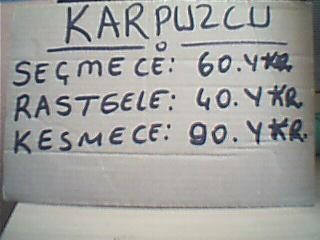 KARPUZCU
SEÇMECE: 60.YKR.
RASTGELE: 40.YKR.
KESMECE: 90.YKR.